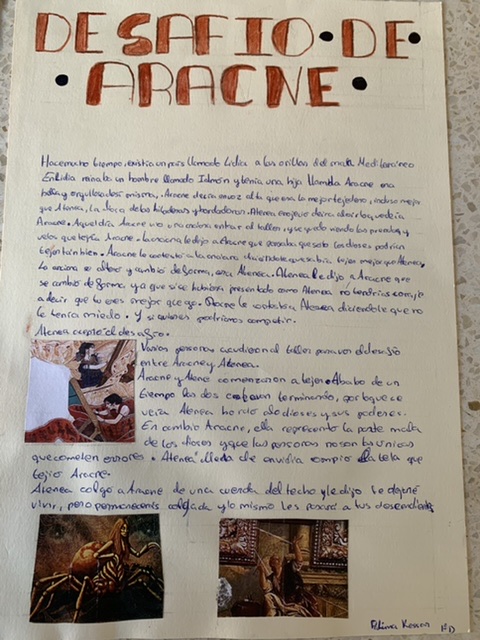 DESAFIO DE
ARACNE
Hace mucho tiempo, existia un pais llamado Lidia a las orillas del mar Mediterráneo
En Lidia reinaba un hombre llamado Idmón y tenia una hija llamada Aracne era
bella y orgullosa de si misma. Aracne decia en voz alta que era la mejor tejedora, incluso mejor
que Atenea, la diosa de las hilanderas y bordadoras. Atenea enojeció decia
Aracne. Aquel dia Aracne vio una anciana entrar al taller y se quedo viendo las prendas y
velos que tejia Aracne. La anciana le dijo a Aracne que pensaba que solo los dioses podrian
tejer tan bien. Aracne le contesto a la anciana diciendole que sabia tejer mejor que Atenea,
La anciana se altero y cambio de forma, era Atenea. Atenea le dijo a Aracne que
se cambio de forma ya que si se hubiera presentado como Atenea no tendrias coraje
a decir que tu eres mejor que yo. Aracne le contesto a Atenea diciendole que no
le tenia miedo. Y si quieres podriamos competir.
Atenea acepto el desafio.
Varias personas acudieron al taller para ver el desafio
entre Aracne y Atenea.
Aracne y Atene comenzaron a tejer. Al cabo de un
tiempo las dos estaban terminando, por lo que se
veia Atenea bordo a los dioses y sus poderes.
En cambio Aracne, ella represento la parte mala
de los dioses y que las personas no son las unicas
que cometen errores. Atenea llena de envidia rompio la tela que
tejio Aracne.
Atenea colgo a Aracne de una cuerda del techo y le dijo te dejaré
vivir, pero permaneceras colgada y lo mismo les pasará a tus descendientes
1ºD